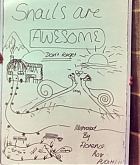 Snails are
AWESOME
Don't forget
Illustrated
By
Florence